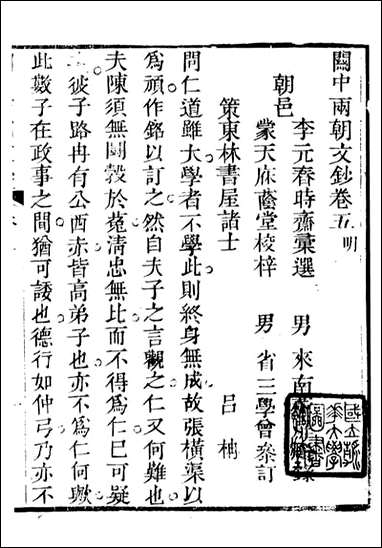 關中兩朝文鈔卷五 明
李元春時齋彙選 男 來南
朝邑
蒙天庥蔭堂校梓 男 省三學會參訂
策東林書屋諸士
呂柟
問仁道雖大學者不學此則終身無成故張橫渠以
爲頑作銘以訂之然自夫子之言觀之仁又何難也
夫陳須無鬪穀於菟清忠無比而不得爲仁巳可疑
彼子路冉有公西赤皆高弟子也亦不爲仁何歟
此數子在政事之間猶可諉也德行如仲弓乃亦不